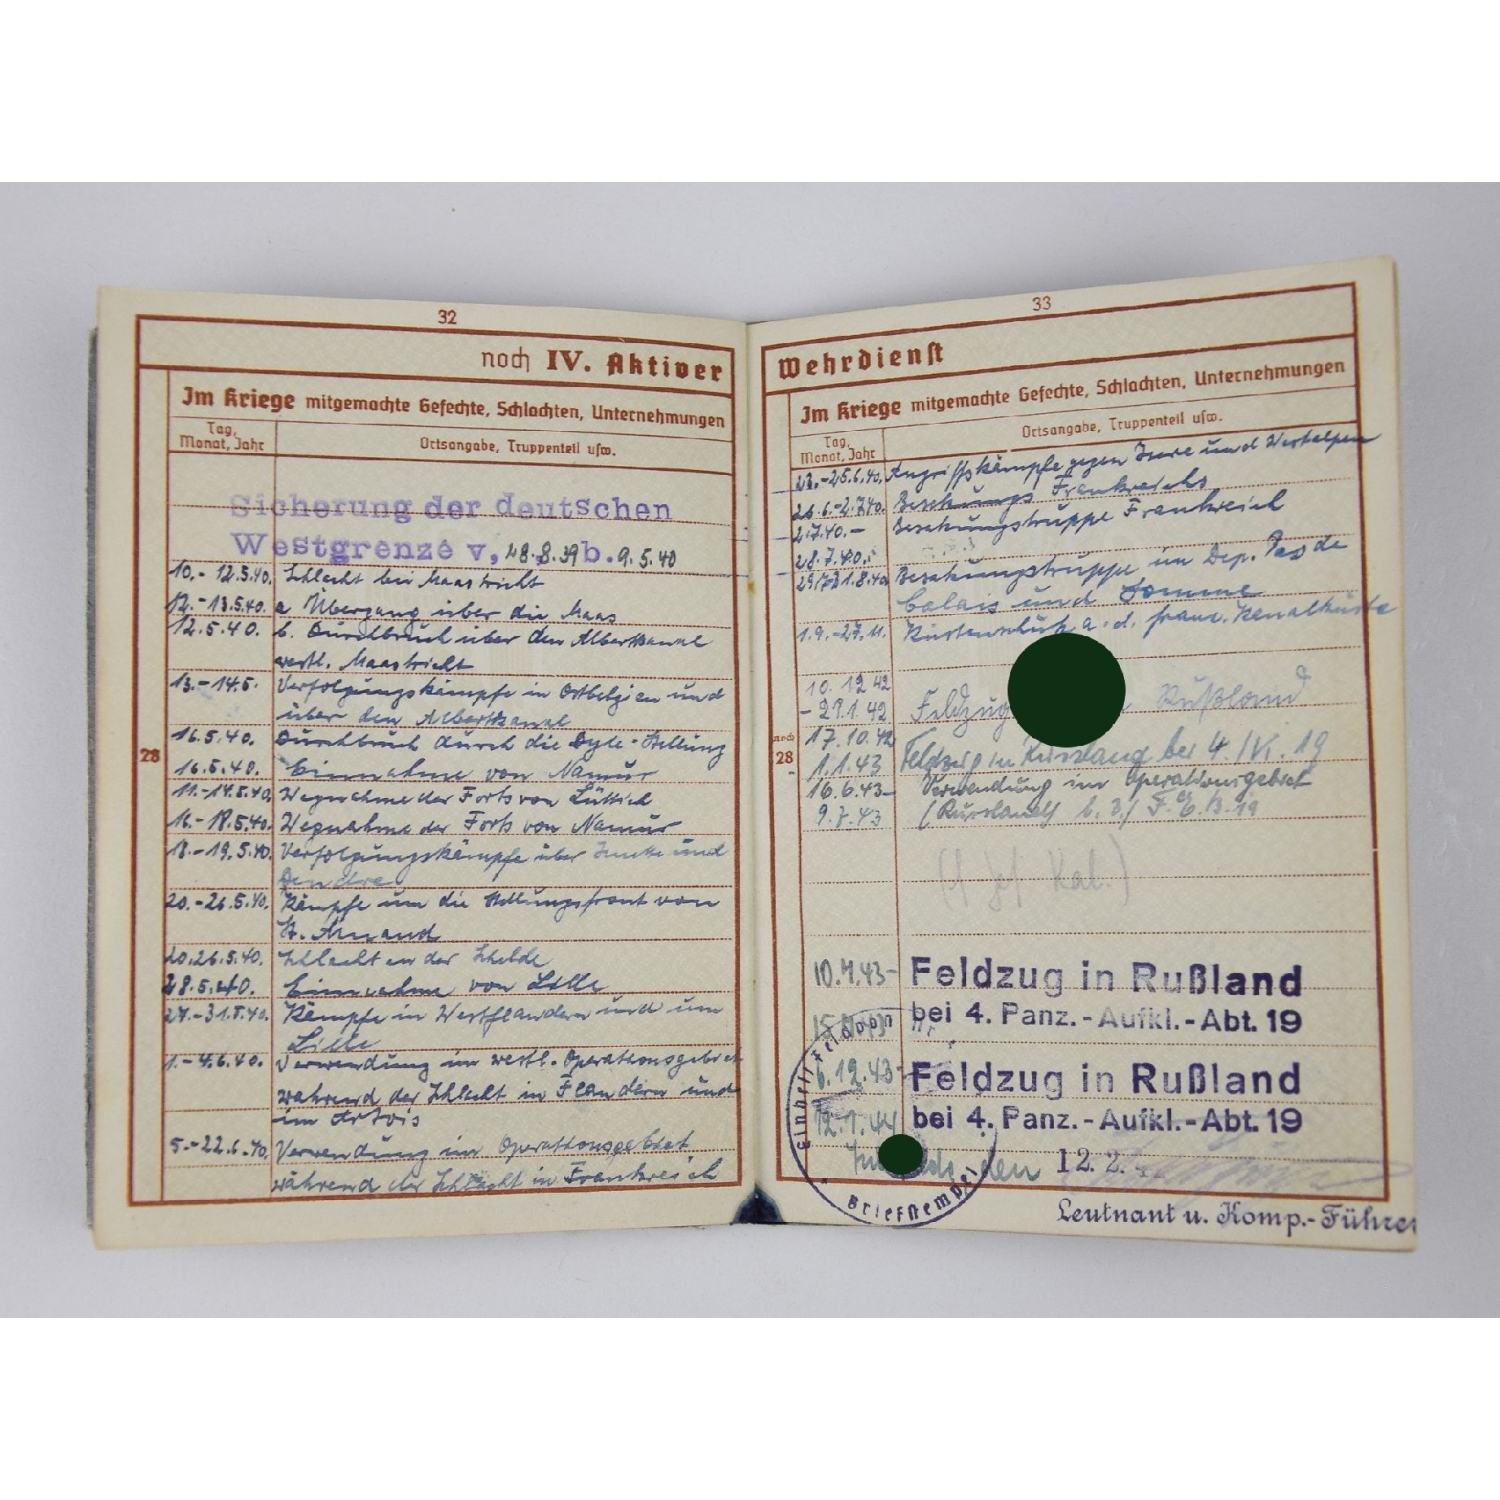 32
noch IV. Aktiver
Im Kriege mitgemachte Gefechte, Schlachten, Unternehmungen
Tag, Monat, Jahr
Ortsangabe, Truppenteil usw.
Sicherung der deutschen
Westgrenze v, 28.8.39 b. 9.5.40
10.-12.5.40. Schlacht bei Maastricht
12.-13.5.40. a Übergang über die Maas
12.5.40. b. Durchbruch über den Albertkanal
westl. Maastricht
13.-14.5. Verfolgungskämpfe in Ostbelgien und
über den Albertkanal
28
16.5.40. Durchbruch durch die Dyle-Stellung
16.5.40. Einnahme von Namur
11.-14.5.40. Wegnahme der Forts von Lüttich
16.-18.5.40. Wegnahme der Forts von Namur
18.-19.5.40. Verfolgungskämpfe über und
Dendre
20.-26.5.40. Kämpfe um die Stellungsfront von
St. Amand
20.26.5.40. Schlacht an der Schelde
28.5.40. Einnahme von Lille
27.-31.5.40. Kämpfe in Westflandern und um
Lille
1.-4.6.40. Verwendung im westl. Operationsgebiet
während der Schlacht in Flandern und
im Artois
5.-22.6.40. Verwendung im Operationsgebiet
während der Schlacht in Frankreich
33
Wehrdienst
Im Kriege mitgemachte Gefechte, Schlachten, Unternehmungen
Tag, Monat, Jahr
Ortsangabe, Truppenteil usw.
-25.6.40. Angriffskämpfe gegen Isere und Westalpen
26.6.-2.7.40. Besetzungs Frankreichs
2.7.40.- Besatzungstruppe Frankreich
28.7.40.
Besatzungstruppe im Dep. Pas de
Calais und Somme
1.9.-27.11. Küstenschutz a. d. franz. Kanalküste
10.12.42
-29.1.42 Feldzug Rußland
noch
28
17.10.42 Feldzug in Russland bei 4./ 19
1.1.43
16.6.43- Verwendung im Operationsgebiet
9.7.43 (Russland)
10.7.43- Feldzug in Rußland
bei 4. Panz.-Aufkl.-Abt. 19
6.12.43- Feldzug in Rußland
12.1.44 bei 4. Panz.-Aufkl.-Abt. 19
den 12.2.
Einheit Feldpost Nr.
Briefstempel
Leutnant u. Komp.-Führer